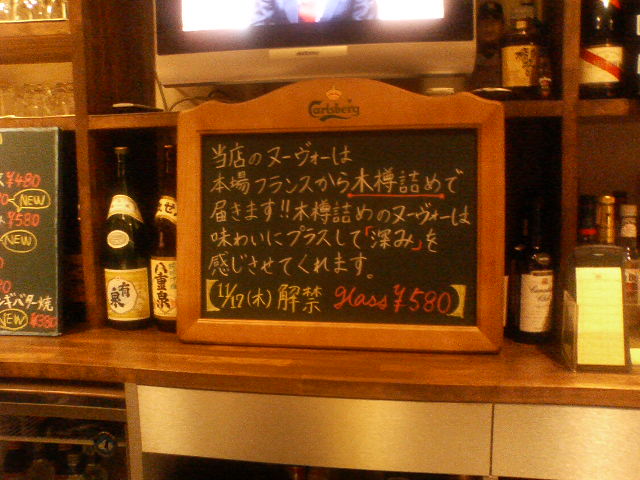 Carlsberg
当店のヌーヴォーは
本場フランスから木樽詰めで
届きます!!木樽詰めのヌーヴォーは
味わいにプラスして「深み」を
感じさせてくれます。
【11/17(木)解禁 glass ¥580】
¥480
NEW
¥580
NEW
ギバター焼
NEW ¥380
有泉
八重泉